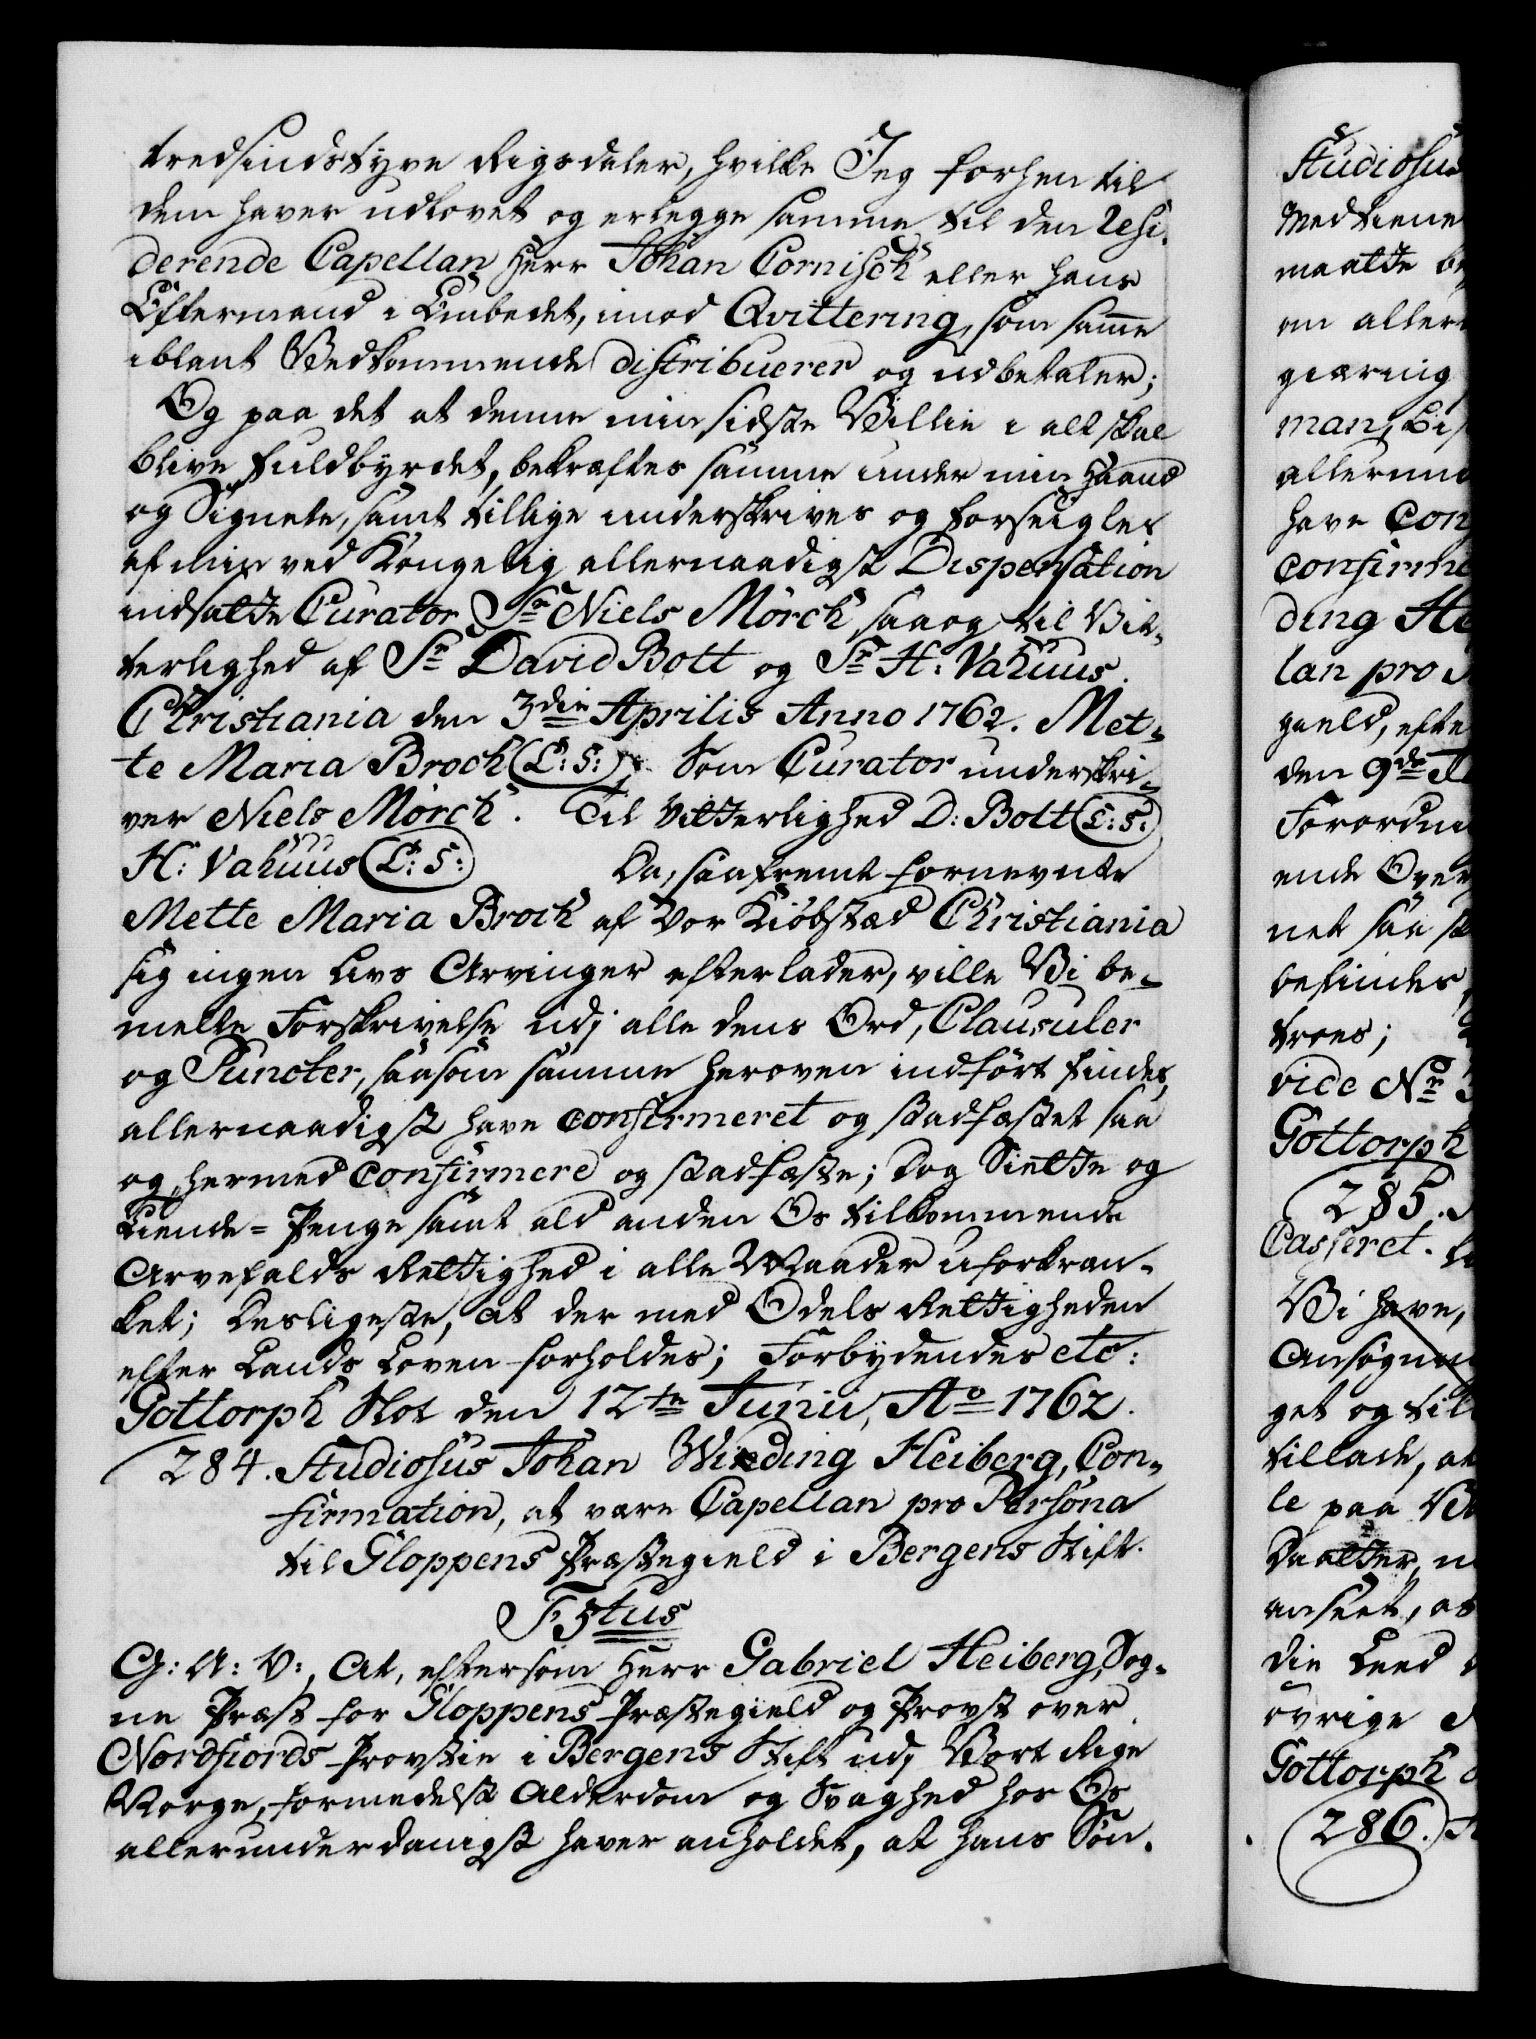 tredsindstyve Rigsdaler, hvilke Jeg forhen til
dem haver udlovet og erlegge samme til den Resi-
derende Capellan Herr Johan Cornisch eller hans
Eftermand i Embedet, imod Qvittering, som samme
iblant Vedkommende distribuerer og udbetaler;
Og paa det at denne min sidste Villie i alt skal
blive fuldbyrdet, bekræftes samme under min Haand
og Signete, samt tillige underskrives og forseigles
af min ved Kongelig allernaadigst Dispensation
indsatte Curator Sr Niels Mörch, saa og til Vit-
terlighed af Sr David Bott og Sr H: Vahuus.
Christiania den 3die Aprilis Anno 1762. Met-
te Maria Broch (L: S:) Som Curator underskri-
ver Niels Mörch. Til Vitterlighed D: Bott (L: S:)
H: Vahuus (L: S:) Da, saafremt fornevnte
Mette Maria Broch af Vor Kiöbstæd Christiania
sig ingen Livs Arvinger efterlader, ville Vi be-
melte Forskrivelse udj alle dens Ord, Clausuler
og Puncter, saasom samme heroven indfört findes,
allernaadigst have confirmeret og stadfæstet saa
og hermed confirmere og stadfæste; Dog Siette og
Tiende-Penge samt ald anden Os tilkommende
Arvefalds Rettighed i alle Maader uforkræn-
ket; Desligeste, at der med Odels Rettigheden
efter Lands Loven forholdes; Forbydendes etc:
Gottorph Slot den 12te Junii, Ao 1762.
284. Studiosus Johan Winding Heiberg, Con-
firmation, at være Capellan pro Persona
til Gloppens Præstegield i Bergens Stift.
F 5tus
G: A: V:, At, eftersom Herr Gabriel Heiberg, Sog-
ne Præst for Gloppens Præstegield og Provst over
Nordfiords Provstie i Bergens Stift udj Vort Rige
Norge, formedelst Alderdom og Svaghed hos Os
allerunderdanigst haver anholdet, at hans Sön.
Studiosus
Medtiene
maatte
om aller
giæring
man, Bi
allerund
have Con
confirme
ding He
lan pro
gield, efte
den 9de
Forordni
ende Over
net saa
befindes
troes;
vide No 3
Gottorph
285.
Casseret.
Vi have,
Ansögni
get og til
tillade, at
le paa
Datter,
anseet, at
die Leed
övrige
Gottorph
286.